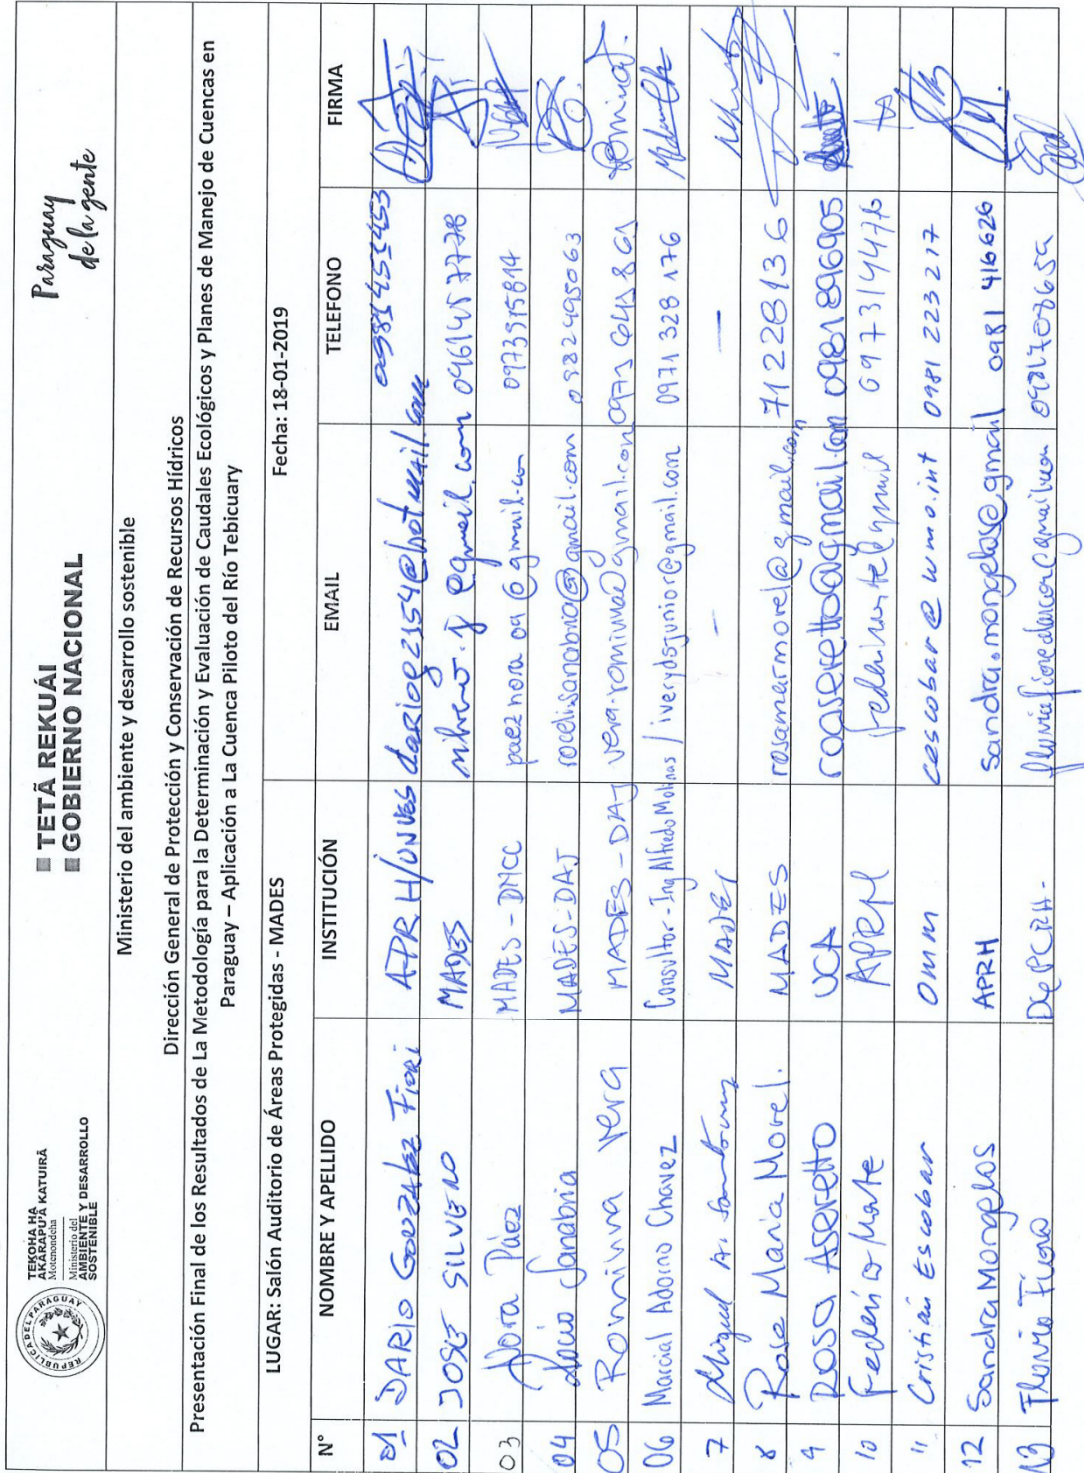 TEKOHA HA
AKARAPU'Ã KATUIRÃ
Motenondeha
Ministerio del
AMBIENTE Y DESARROLLO
SOSTENIBLE
REPUBLICA DEL PARAGUAY
TETÃ REKUÁI
GOBIERNO NACIONAL
Paraguay
de la gente
Ministerio del ambiente y desarrollo sostenible
Dirección General de Protección y Conservación de Recursos Hídricos
Presentación Final de los Resultados de La Metodología para la Determinación y Evaluación de Caudales Ecológicos y Planes de Manejo de Cuencas en
Paraguay – Aplicación a La Cuenca Piloto del Río Tebicuary
LUGAR: Salón Auditorio de Áreas Protegidas - MADES Fecha: 18-01-2019
N° NOMBRE Y APELLIDO INSTITUCIÓN EMAIL TELEFONO FIRMA
01 DARIO GONZALEZ FIORI APRH/UNVES dariog2154@hotmail.com
02 JOSE SILVERO MADES
03 Nora Páez MADES - DMCC paeznora09@gmail.com 0973515814
04 Rocio Sanabria MADES-DAJ 0982495063
05 Romina Vera MADES - DAJ vera.romina@gmail.com 0973 641 861
06 Marcial Adorno Chavez Consultor-Ing Alfredo Molinas / iverydsjunior@gmail.com 0971 328 176
7 Miguel A. MADES - —
8 Rosa Maria Morel. MADES rosamarmorel@gmail.com 71228136
9 ROSA ASERETTO UCA roaseretto@gmail.com 0981896905
10 Federico APRH
11 Cristián Escobar OMM cescobar@wmo.int 0981 223217
12 Sandra Mongelos APRH sandra.mongelos@gmail 0981 416626
13 Flavia Fiore